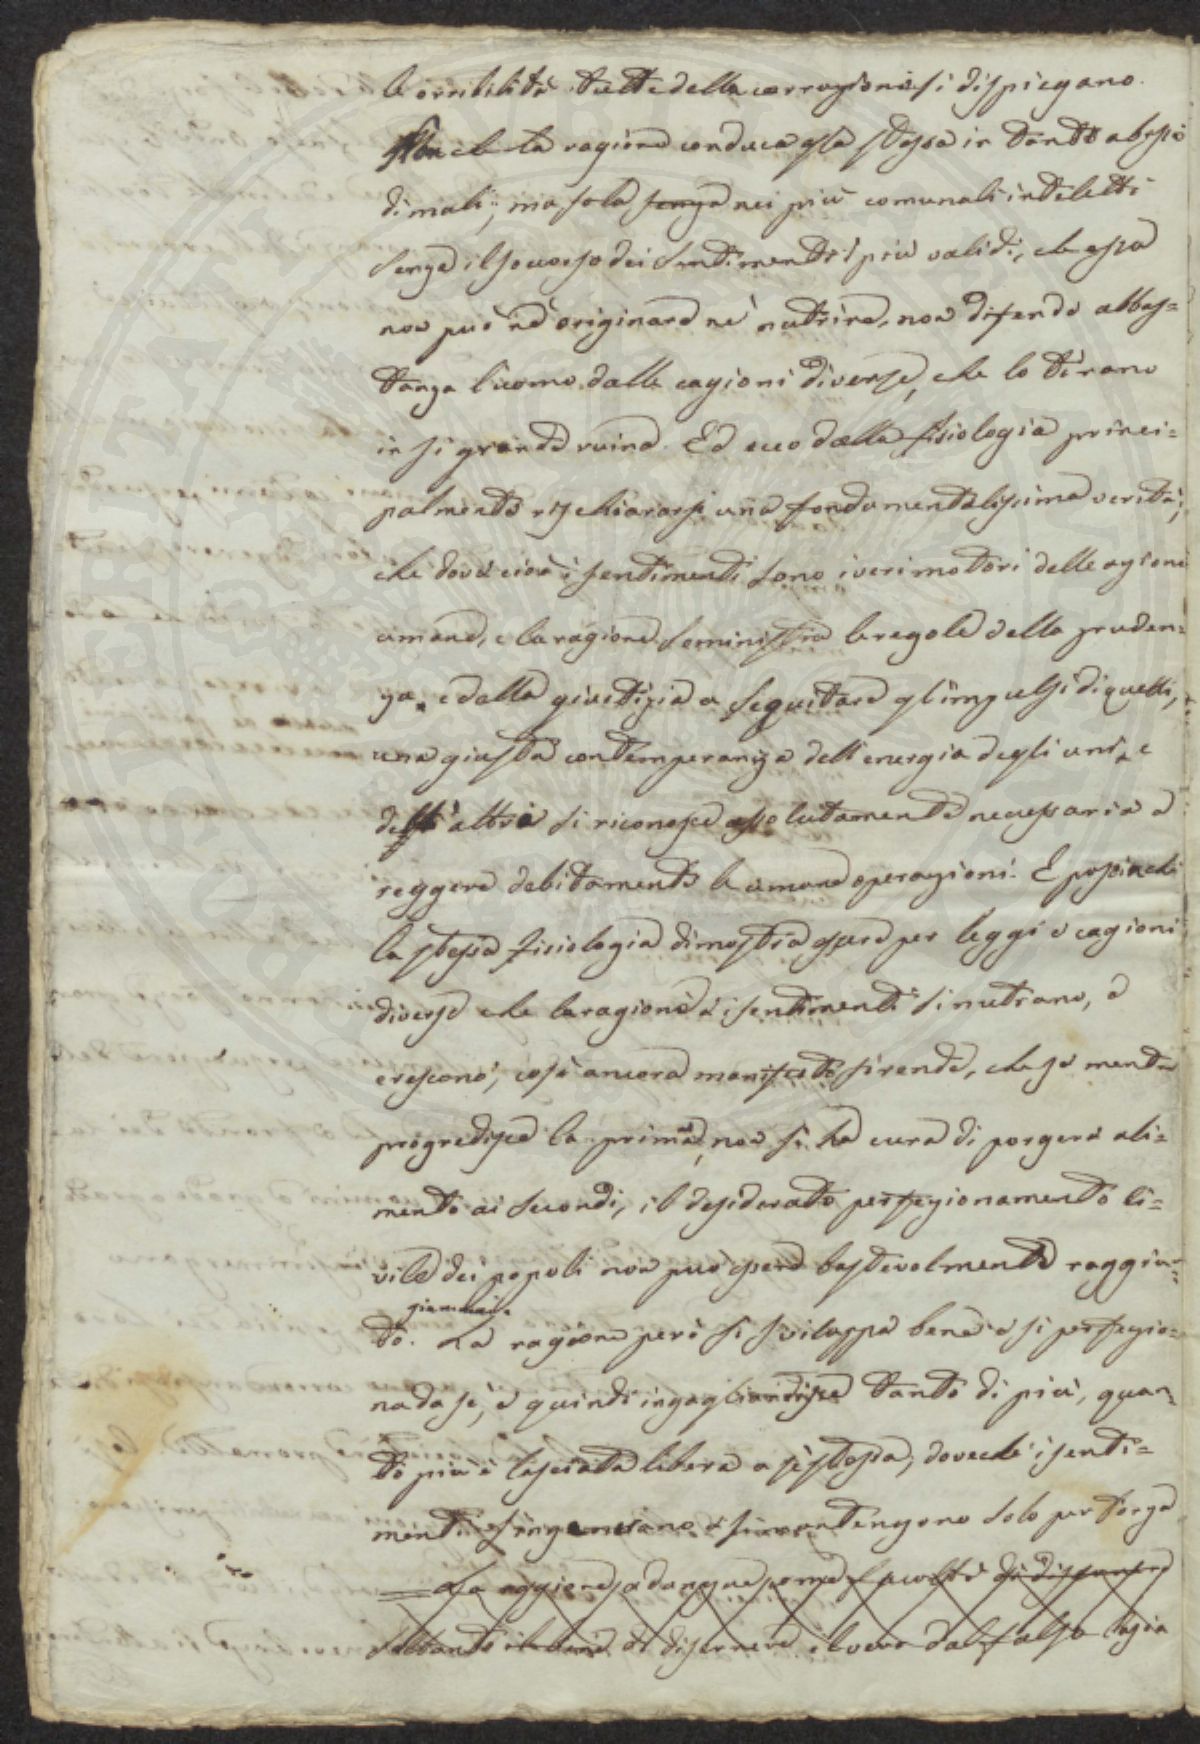 le orribilità tutte della corruzione si dispiegano.
Non che la ragione conduca essa stessa in tanto abisso
di mali; ma sola senza nei più comunali intelletti
senza il soccorso dei sentimenti i più validi, che essa
non può nè originare nè nutrire, non difende abbas=
tanza l'uomo dalle cagioni diverse, che lo tirano
in si grande ruina. Ed ecco dalla fisiologia princi=
palmente rischiararsi una fondamentalissima verità;
che dove cioè i sentimenti sono i veri motori delle azioni
umane, e la ragione somministra le regole della pruden=
za, e della giustizia a seguitare gl'impulsi di quelli,
una giusta contemperanza dell'energia degli uni, e
dell' altra si riconosce assolutamente necessaria a
reggere debitamente le umane operazioni. E possiache
la stessa fisiologia dimostra essere per leggi e cagioni
diverse che la ragione e i sentimenti si nutrano, e
crescono, così ancora manifesto si rende, che se mentre
progredisce la prima, non si ha cura di porgere ali=
mento ai secondi, il desiderato perfezionamento ci=
vile dei popoli non può essere bastevolmente raggiun=
giammai
to. La ragione però si sviluppa bene e si perfezio=
na da sè, e quindi ingagliardisce tanto di più, quan=
to più è lasciata libera a sè stessa; dovechè i senti=
menti s'ingenerano e si mantengono solo per forza
La dunque come facoltà di
soltanto di discernere il vero dal falso